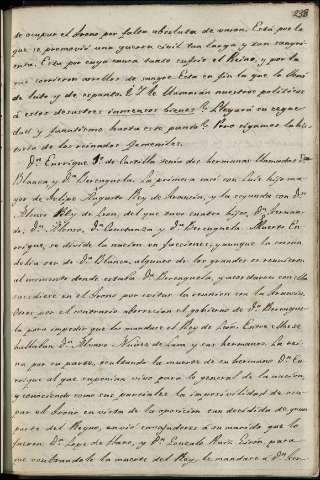 238
se ocupar el trono por falta absoluta de varon. Esta por la
que se promovió una guerra civil tan larga y tan sangri-
enta. Esta por cuya causa tanto sufrio el Reino, y por la
que corrieron arroyos de sangre. Esta en fin la que la llenó
de luto y de espanto. Y se llamarán nuestros politicos
á estos desastres inmensos bienes? Llegará su cegue
dad y fanatismo hasta este punto? Pero sigamos la his
toria de los reinados
Dn. Enrrique 1º de Castilla tenia dos hermanas llamadas Da.
Blanca y Da. Berenguela. La primera casó con Luis hijo ma-
yor de Felipe Augusto Rey de Francia, y la segunda con Dn.
Alonso Rey de Leon, del que tuvo cuatro hijos, Dn. Fernan-
do, Dn. Alonso, Da. Constanza y Da. Berenguela. Muerto En-
rrique, se divide la nacion en facciones, y aunque la corona
debia ser de Da. Blanca, algunos de los grandes se reunieron
al momento donde estaba Da. Berenguela, y acordaron con ella
sucediese en el trono por evitar la reunion con la Francia.
Otros por el contrario aborrecian el gobierno de Da. Berengue-
la para impedir que los mandase el Rey de León. Entre estos se
hallaban Dn. Alvaro Nuñez de Lara y sus hermanos. La rei-
na por su parte, ocultando la muerte de su hermano Dn. En-
rique al que suponian vivo para lo general de la nacion,
y conociendo como sus parciales la imposivilidad de ocu-
par el trono en vista de la oposicion tan decidida de gran
parte del Reyno, envió embajadores á su marido que lo
fueron Dn. Lope de Haro, y Dn. Gonzalo Ruiz Giron para
que ocultandole la muerte del Rey, le mandase á Dn. Fer-